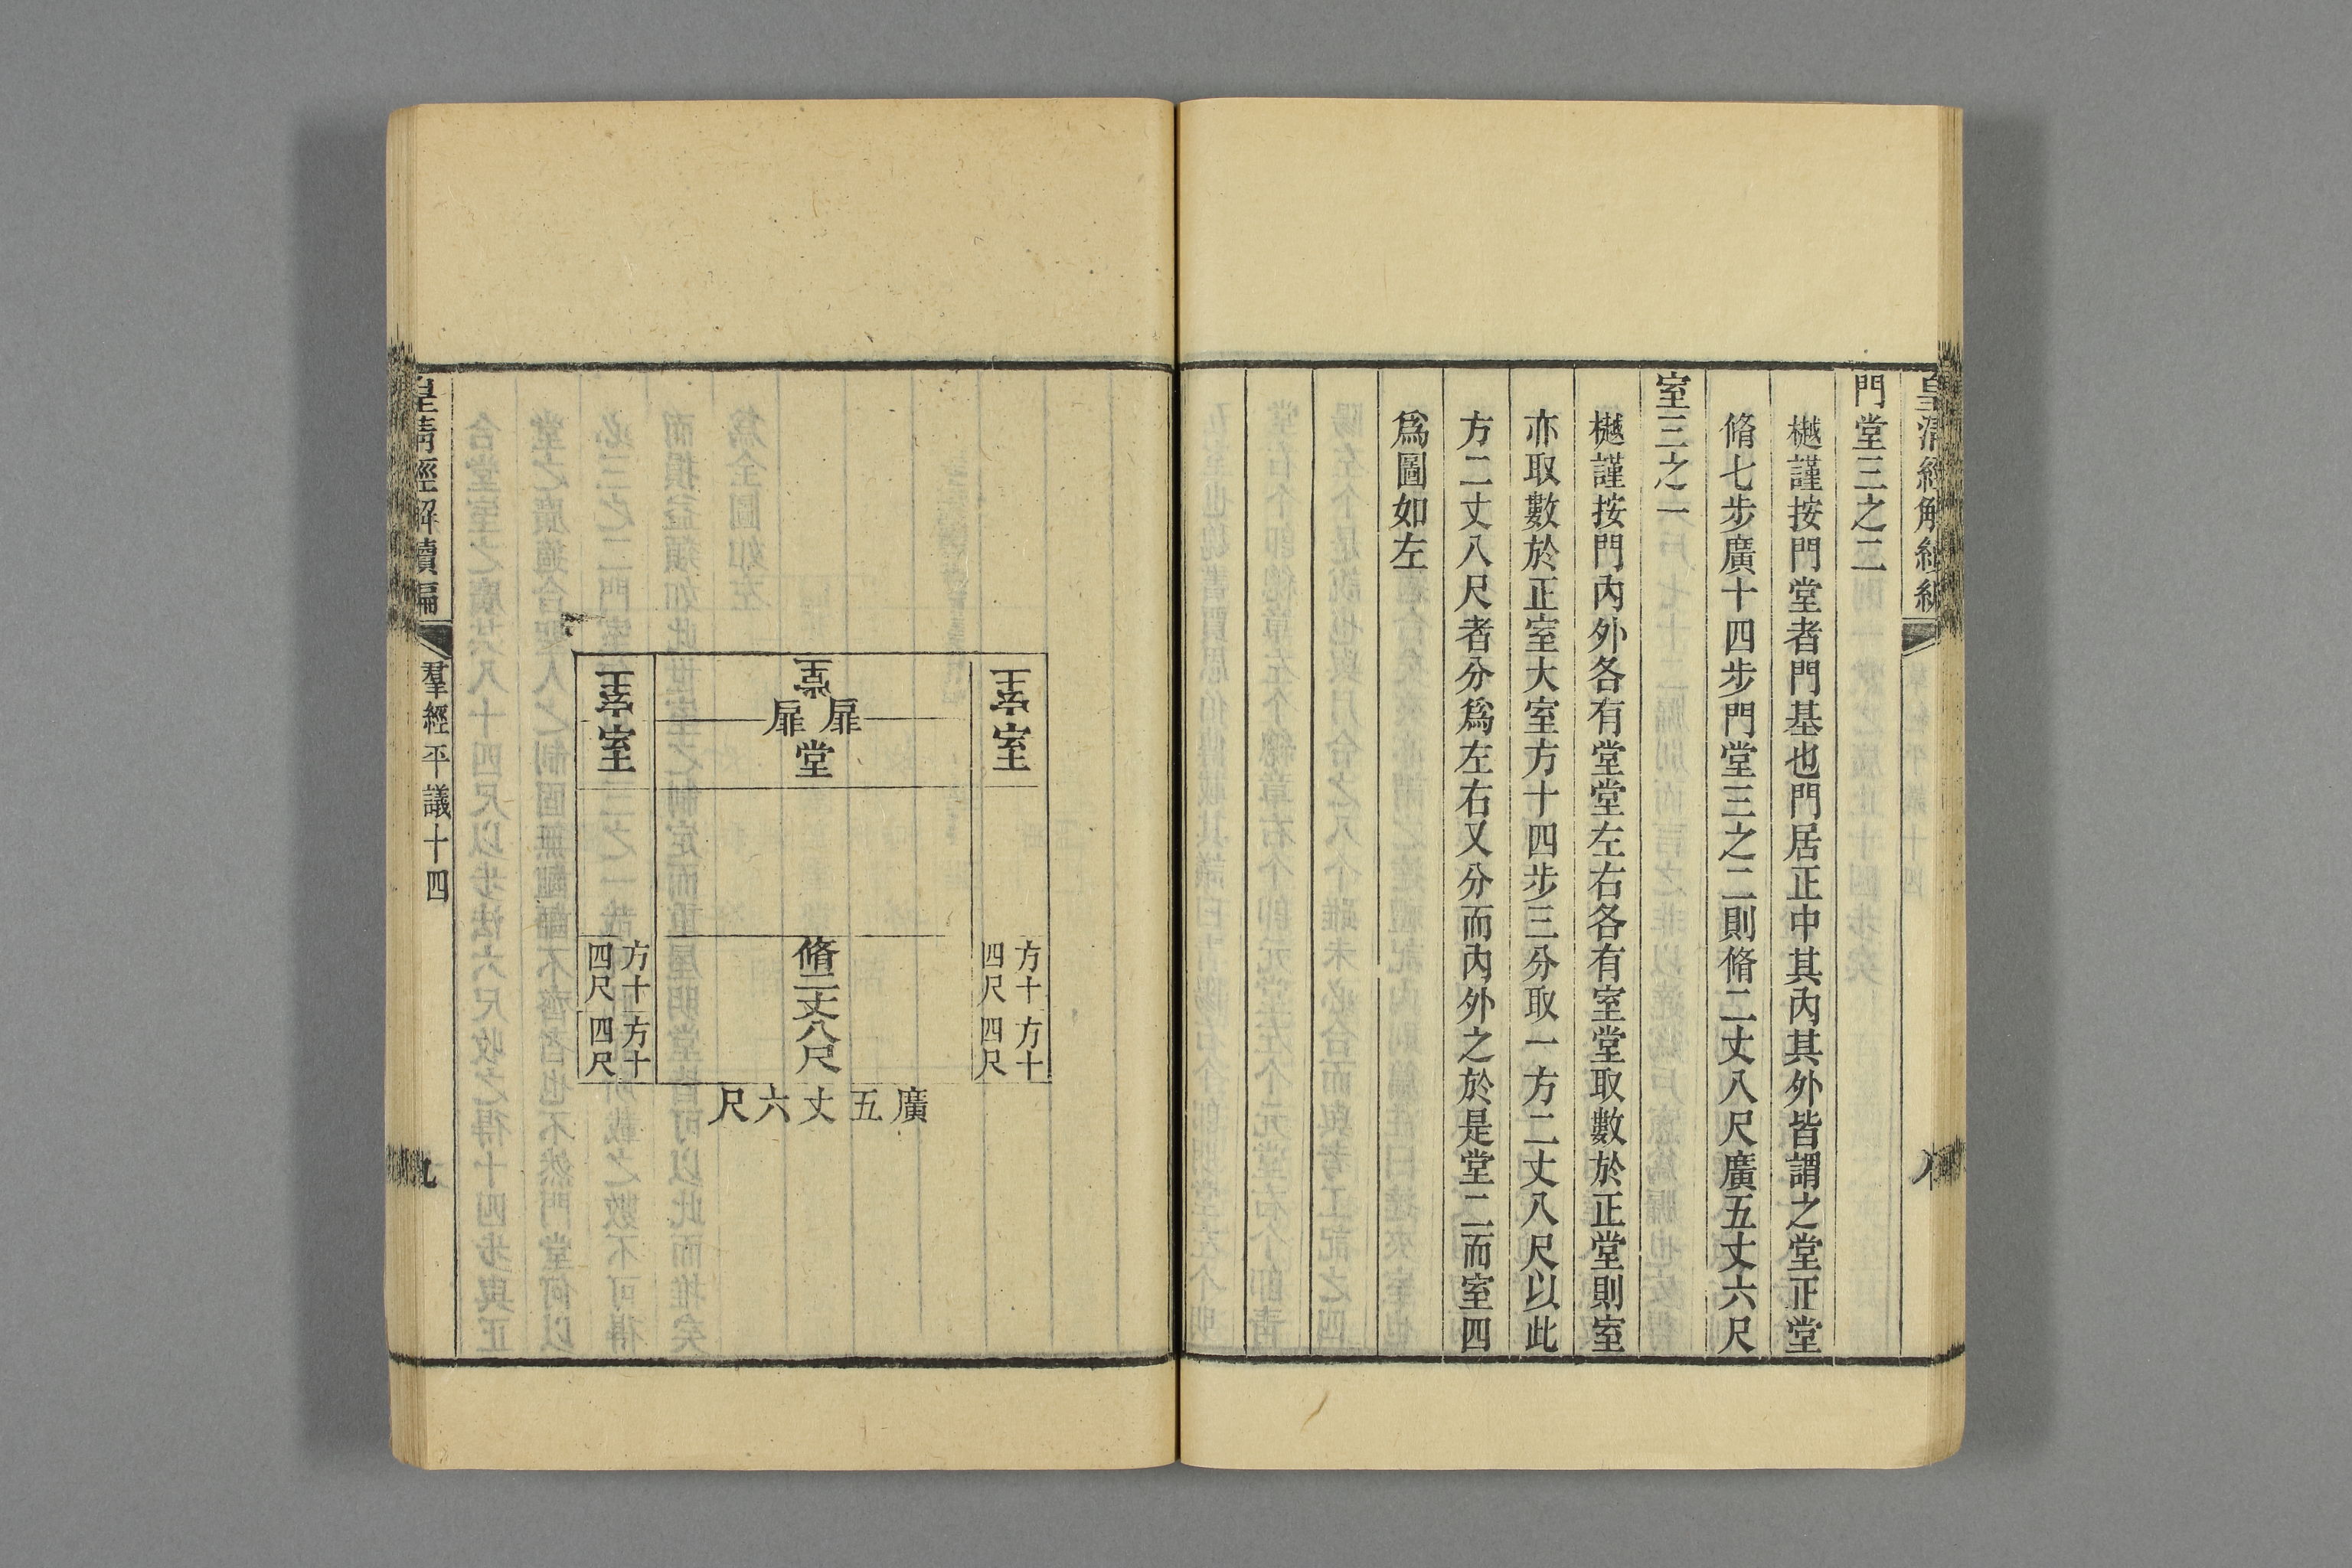 皇清經解續編
八
門堂三之二
樾謹按門堂者門基也門居正中其內其外皆謂之堂正堂
脩七步廣十四步門堂三之二則脩二丈八尺廣五丈六尺
室三之一
樾謹按門內外各有堂堂左右各有室堂取數於正堂則室
亦取數於正室大室方十四步三分取一方二丈八尺以此
方二丈八尺者分爲左右又分而內外之於是堂二而室四
爲圖如左
室
方十四尺
方十四尺
扉
扉
堂
脩二丈八尺
室
方十四尺
方十四尺
廣五丈六尺
皇清經解續編
羣經平議十四
九